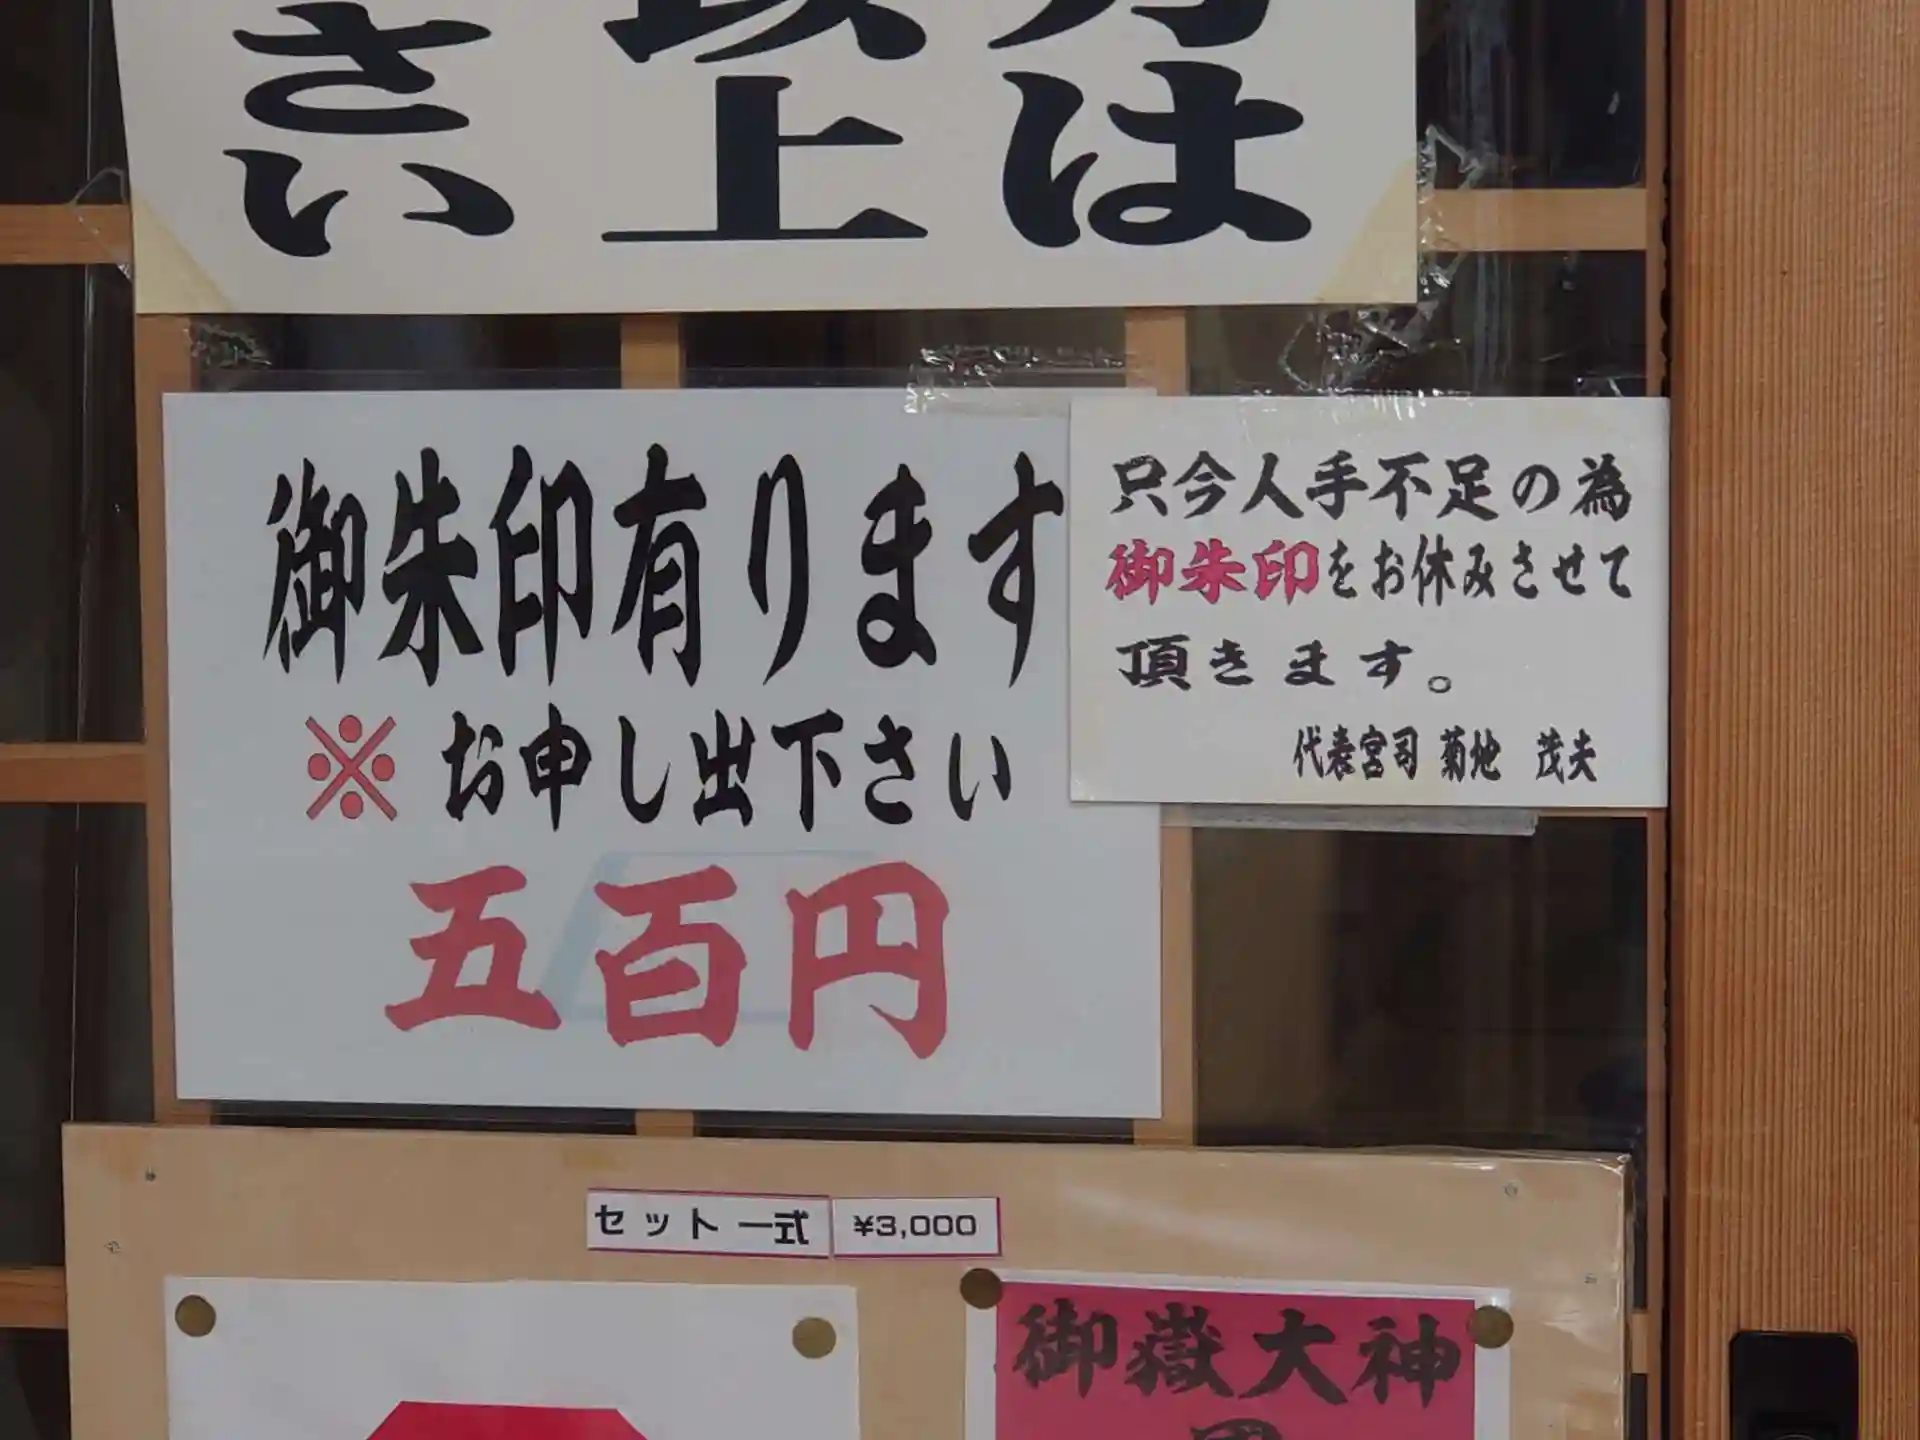 は
上
さい
御朱印有ります
※ お申し出下さい
五百円
只今人手不足の為
御朱印をお休みさせて
頂きます。
代表宮司 菊地 茂夫
セット一式 ¥3,000
御嶽大神